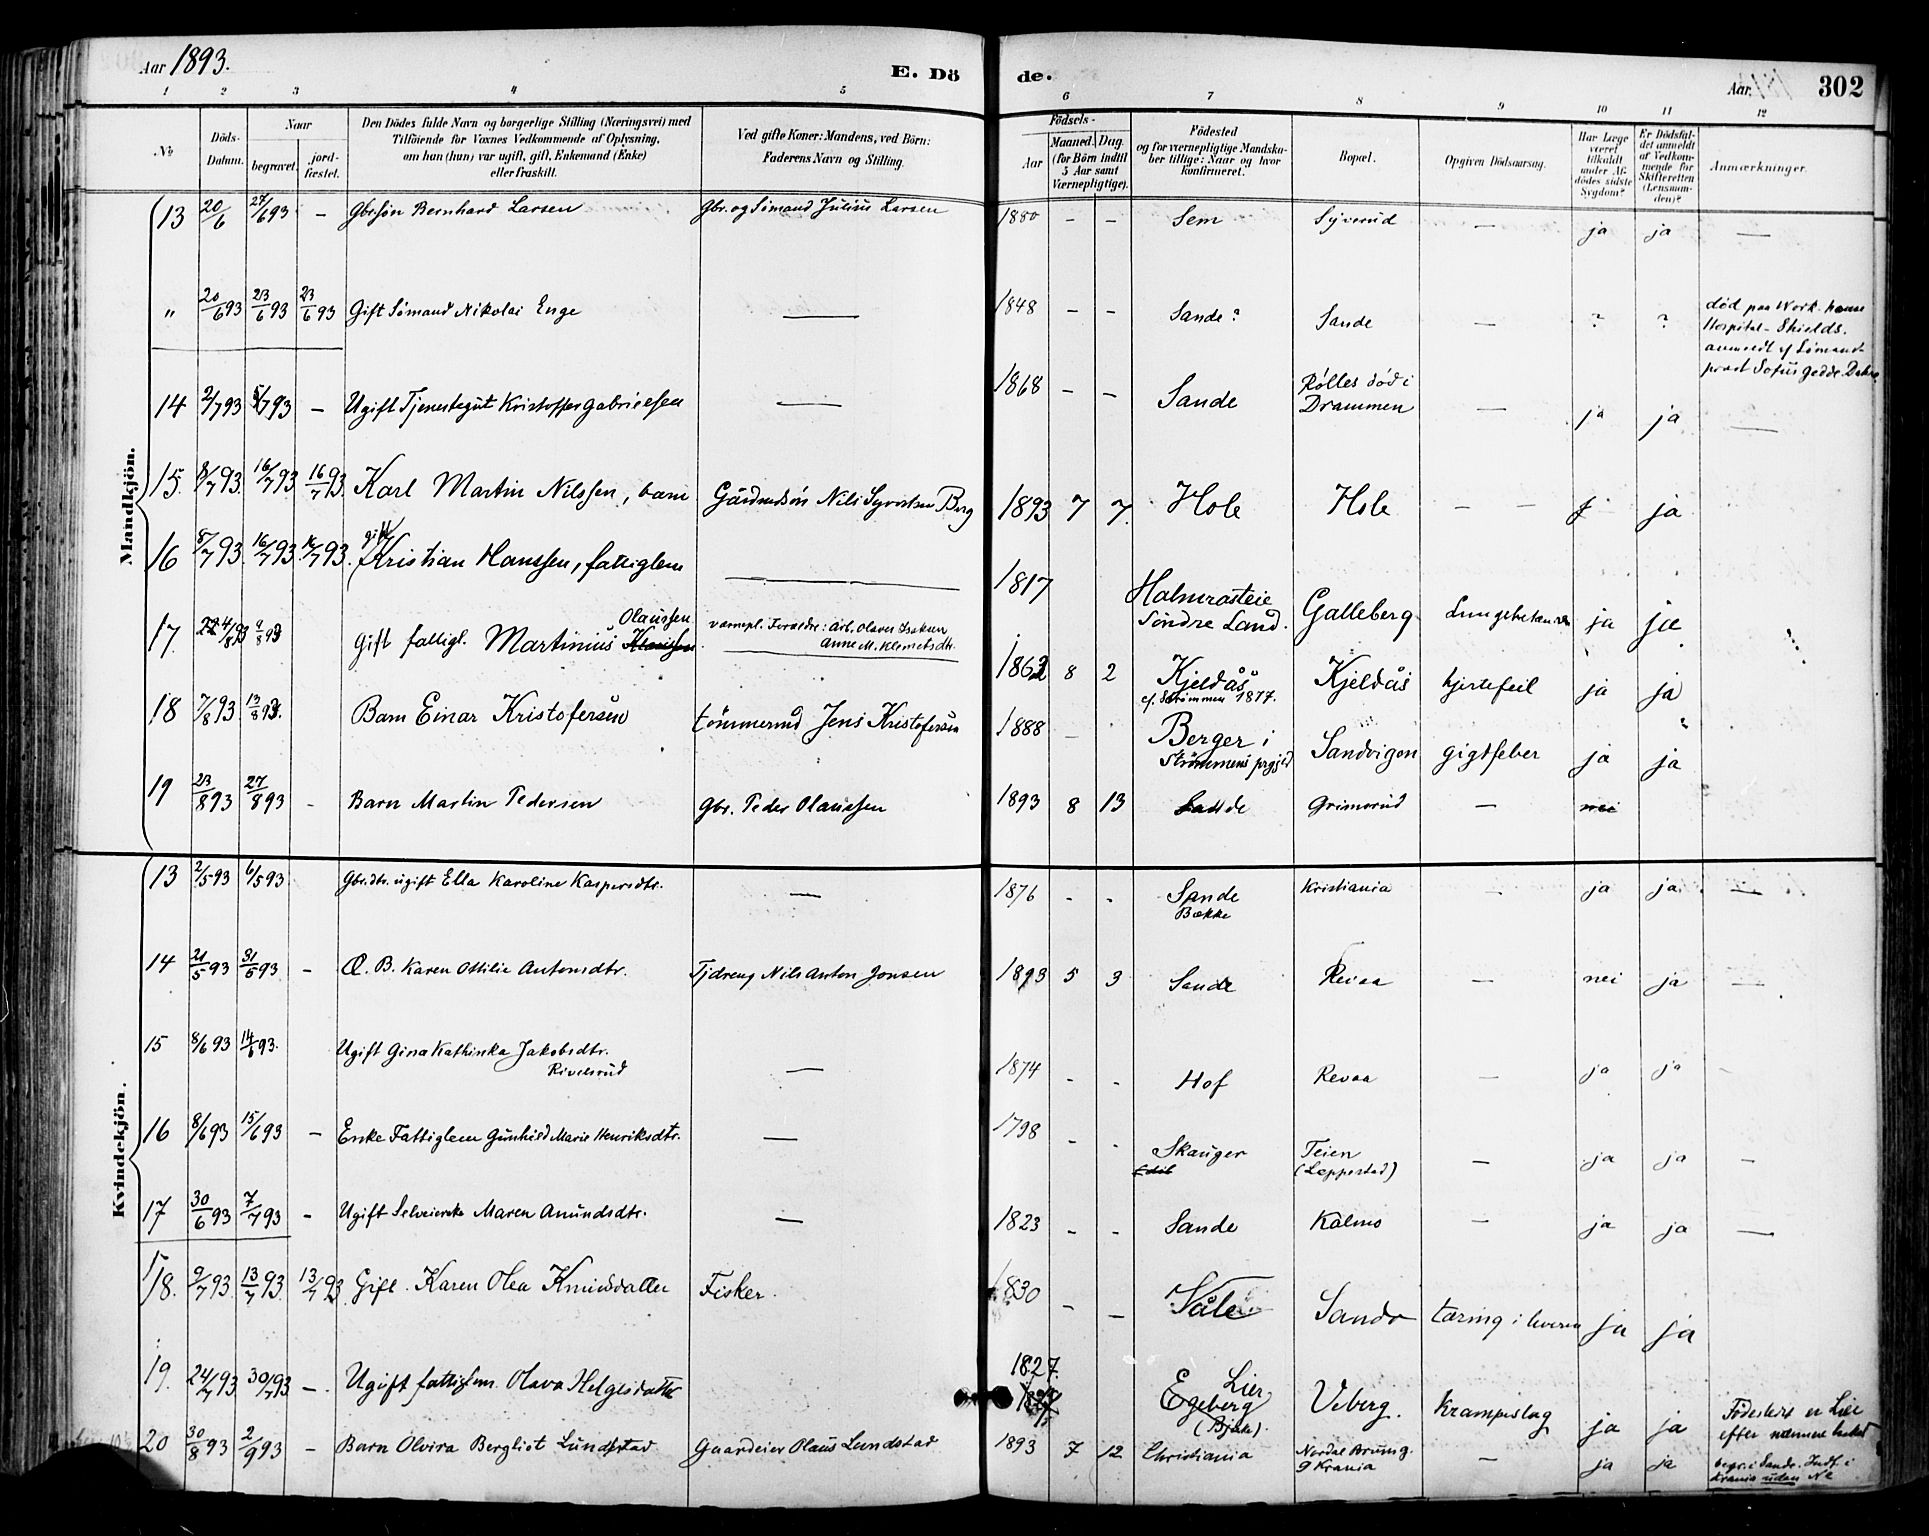 Aar 1893.
E. Dö
de.
Aar
302
1 2 3 4 5 6 7 8 9 10 11 12
№
Döds-Datum.
Naar
begravet.
jord-fæstet.
Den Dödes fulde Navn og borgerlige Stilling (Næringsvei) med
Tilföiende for Voxnes Vedkommende af Oplysning,
om han (hun) var ugift, gift, Enkemand (Enke)
eller fraskilt.
Ved gifte Koner: Mandens, ved Börn:
Faderens Navn og Stilling.
Födsels-
Aar
Maaned. Dag.
(for Börn indtil
5 Aar samt
Værnepligtige).
Födested
og for værnepligtige Mandska-
ber tillige: Naar og hvor
konfirmeret.
Bopæl.
Opgiven Dödsaarsag.
Har Læge
været
tilkaldt
under Af-
dödes sidste
Sygdom?
Er Dödsfal-
det anmeldt
af Vedkom-
mende for
Skifteretten
(Lensman-
den)?
Anmærkninger.
Mandkjön.
13 20/6 27/6 93 - Gbrsøn Bernhard Larsen Gbr. og Sømand Julius Larsen 1880 - - Sem Syverud - ja ja -
" 20/6 93 23/6 93 23/6 93 Gift Sømand Nikolai Enge - 1848 - - Sande? Sande - ? ? død paa Work-house
Hospital - Shields.
anmeldt af Sømands-
præst Sofus Gedde Dahl
14 2/7 93 5/7 93 - Ugift Tjenestegut Kristoffer Gabrielsen - 1868 - - Sande Rølles død i
Drammen - ja ja -
15. 8/7 93. 16/7 93 16/7 93. Karl Martin Nilssen, barn Gårdmdsön Nils Syvertsen Berg 1893 7 7. Hole Hole - - j ja
16 8/7 93. 16/7 93 16/7 93. gift
Kristian Hanssen, fattiglem - 1817 Halmrasteie
Söndre Land. Galleberg ja ja
17. 4/8 93 9/8 93 Gift fattigl. Martinius Olaussen værnepl. Forældre: Arb. Olaves Isaksen
Anne M. Klemetsdtr. 1862 8 2 Kjeldås
cf. Strømmen 1877. Kjeldås hjertefeil ja ja
18 7/8 93 13/8 93. Barn Einar Kristofersen tömmermd Jens Kristofersen 1888 - Berger i
Strömmens prgjeld Sandvigen gigtfeber ja ja
19 23/8 93 27/8 93 - Barn Martin Pedersen Gbr. Peder Olaussen 1893 8 13 Sande Grimsrud - nei
Kvindekjön.
13 2/5 93 6/5 93 Gbr.dtr. ugift Ella Karoline Kaspersdtr. - 1876 - - Sande
Bække Kristiania - ja ja -
14 21/5 93 31/5 93 - Æ. B. Karen Ottilie Antonsdtr. Tjdreng Nils Anton Jonsen 1893 5 3 Sande Revaa - nei ja -
15 8/6 93 14/6 93. Ugift Gina Kathinka Jakobsdtr.
Rivelsrud - 1874 - - Hof Revaa - ja ja -
16 8/6 93 15/6 93 - Enke Fattiglem Gunhild Marie Henriksdtr. - 1798 - - Skauger Teien
(Leppestad) - ja ja -
17 30/6 93 7/7 93 - Ugift Selveierske Maren Amundsdtr. - 1823 - - Sande Kalmo - ja ja -
18. 9/7 93. 13/7 93. 13/7 93 Gift. Karen Olea Knudsdatter Fisker. 1830 - - Våle Sande tæring i leveren ja ja
19. 24/7 93 30/7 93 -. Ugift fattiglem. Olava Helgesdatter 1827. Lier
Egeberg
Veberg. Krampeslag ja ja Födestedet er Lier
efter nærmere
20 30/8 93 2/9 93 - Barn Olvira Bergliot Lundstad Gaardeier Olaus Lundstad 1893 7 12 Christiania Nordal Brunsg.
9 Krania - ja ja begr. i Sande. Indf. i
Krania uden №